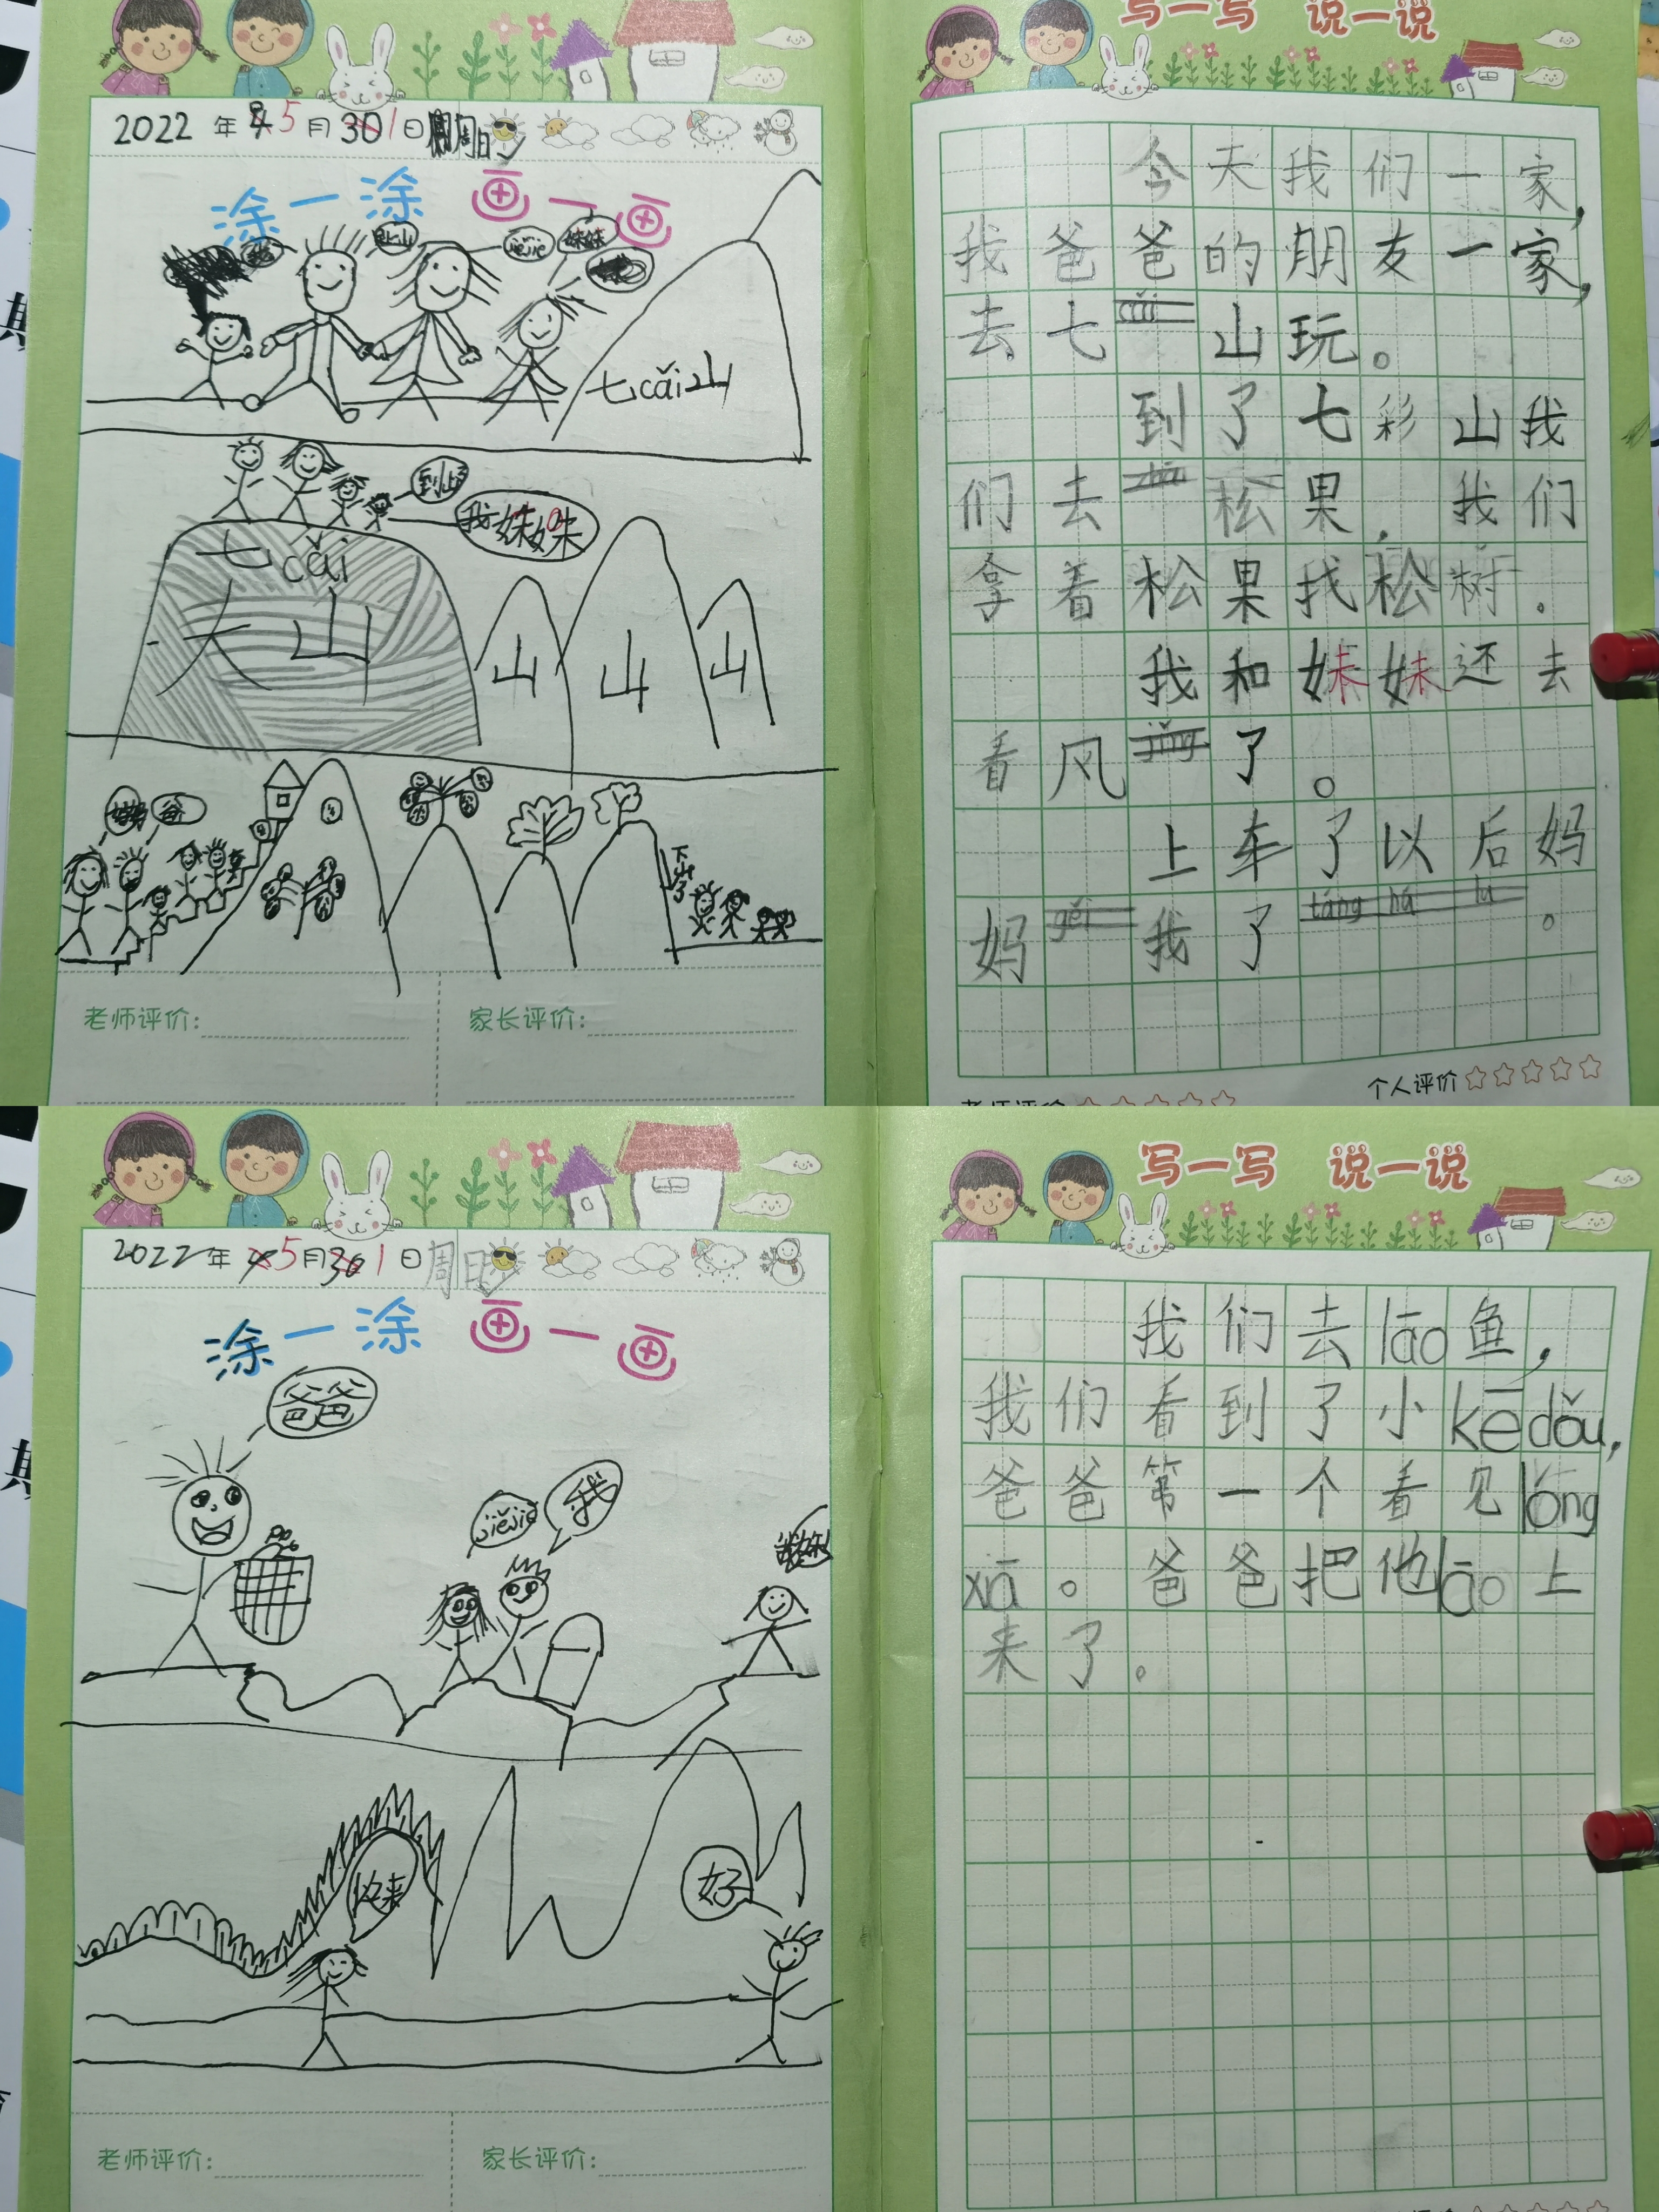 2022年5月1日周日
涂一涂 画一画
jiějie
妹妹
七cǎi山
到山了
我妹妹
七cǎi
大山
山
山
山
爸
下山了
老师评价:
家长评价:
写一写 说一说
今天我们一家,
我爸爸的朋友一家,
去七cǎi山玩。
到了七彩山我
们去松果,我们
拿着松果找松树.
我和妹妹还去
看风jǐng了。
上车了以后妈
妈gěi我了táng hú lu。
个人评价
老师评价
2022年5月1日周日
涂一涂 画一画
爸爸
jiějie
我
我妹妹
快来
好
老师评价:
家长评价:
写一写 说一说
我们去lāo鱼,
我们看到了小kē dǒu,
爸爸第一个看见lóng
xiā。爸爸把他lāo上
来了。